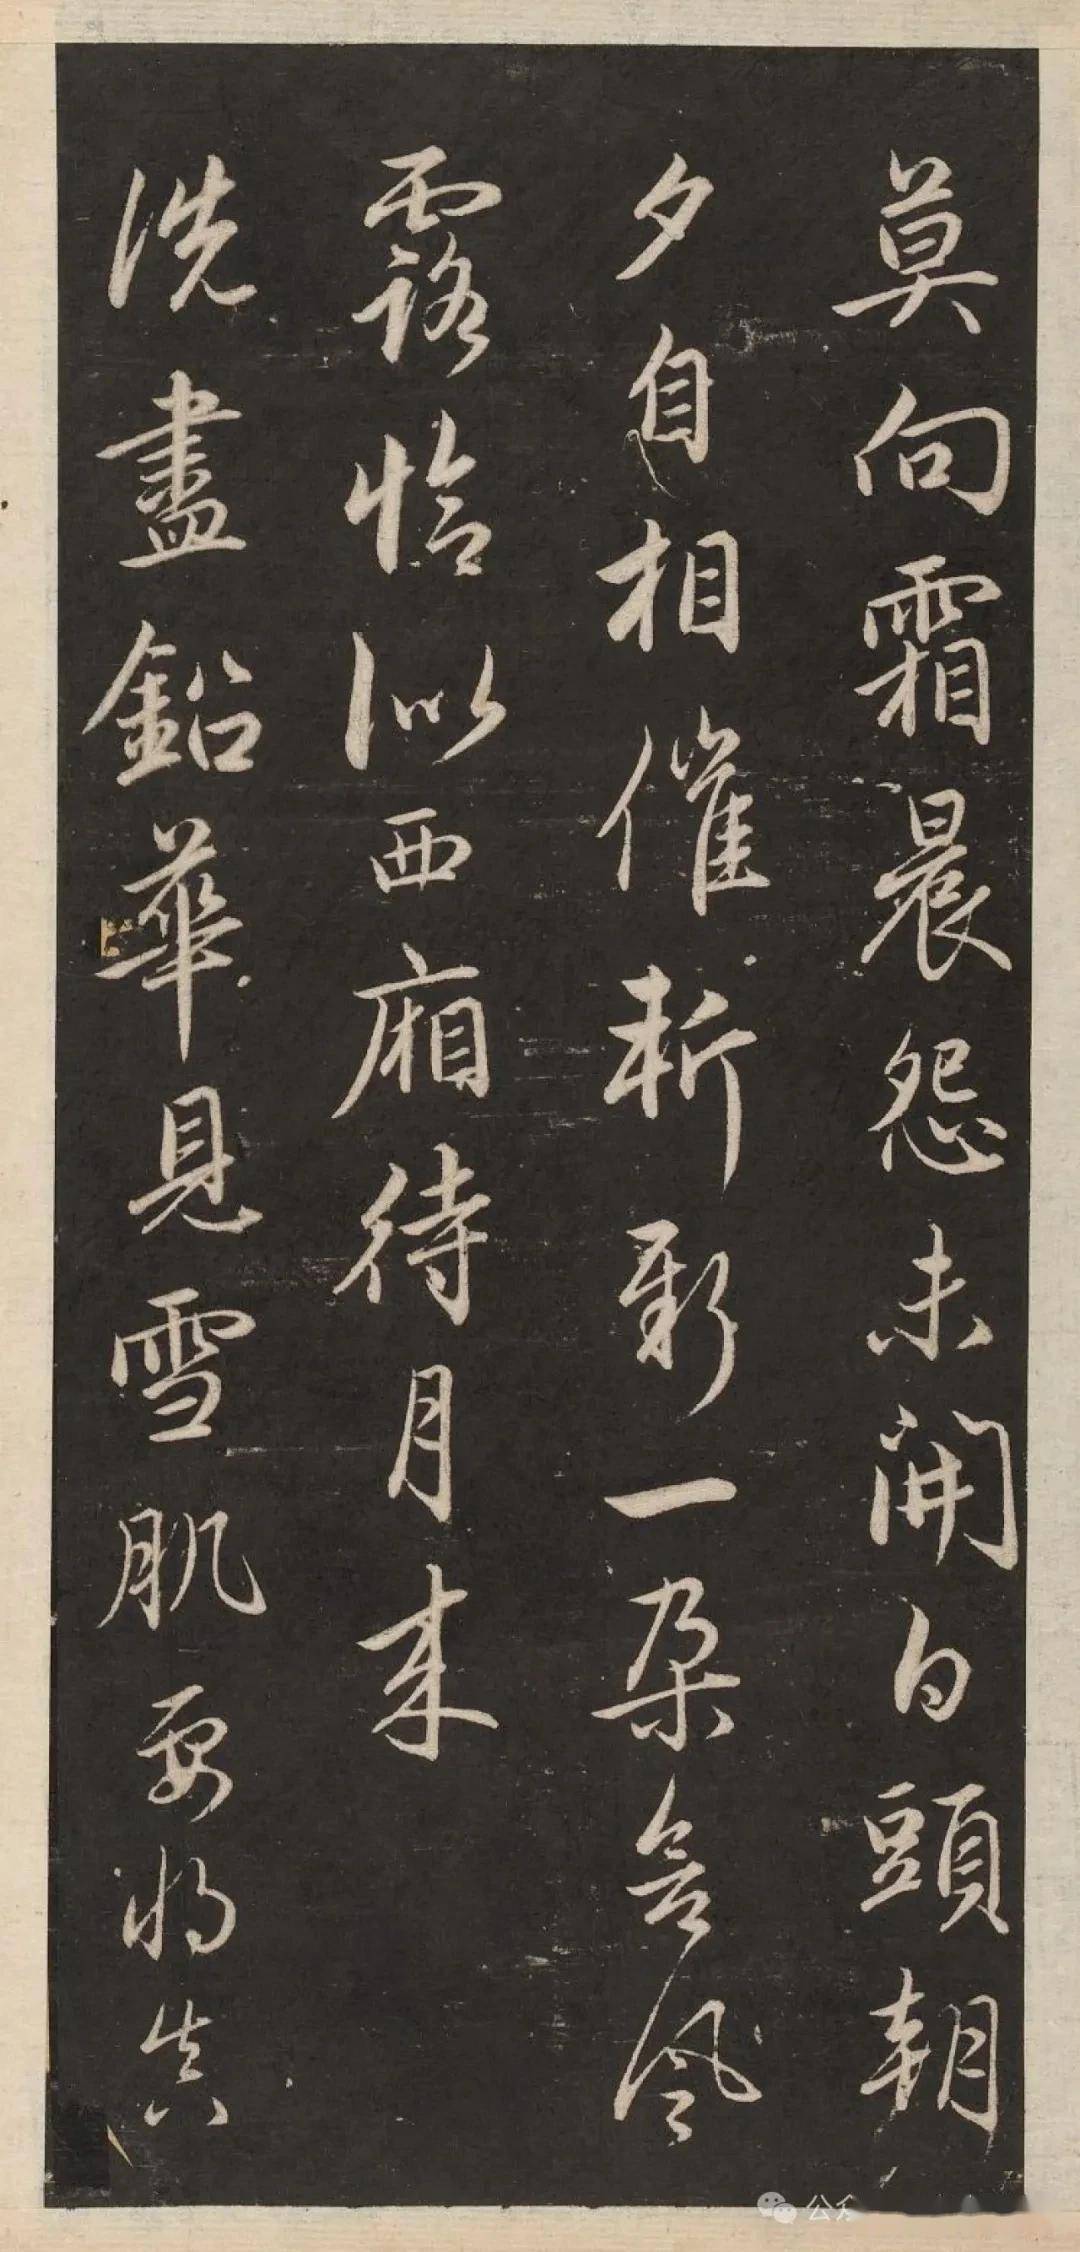 莫向霜晨怨未開白頭朝
夕自相催斬新一朶含風
露恰似西廂待月來
洗盡鉛華見雪肌要將真
公众